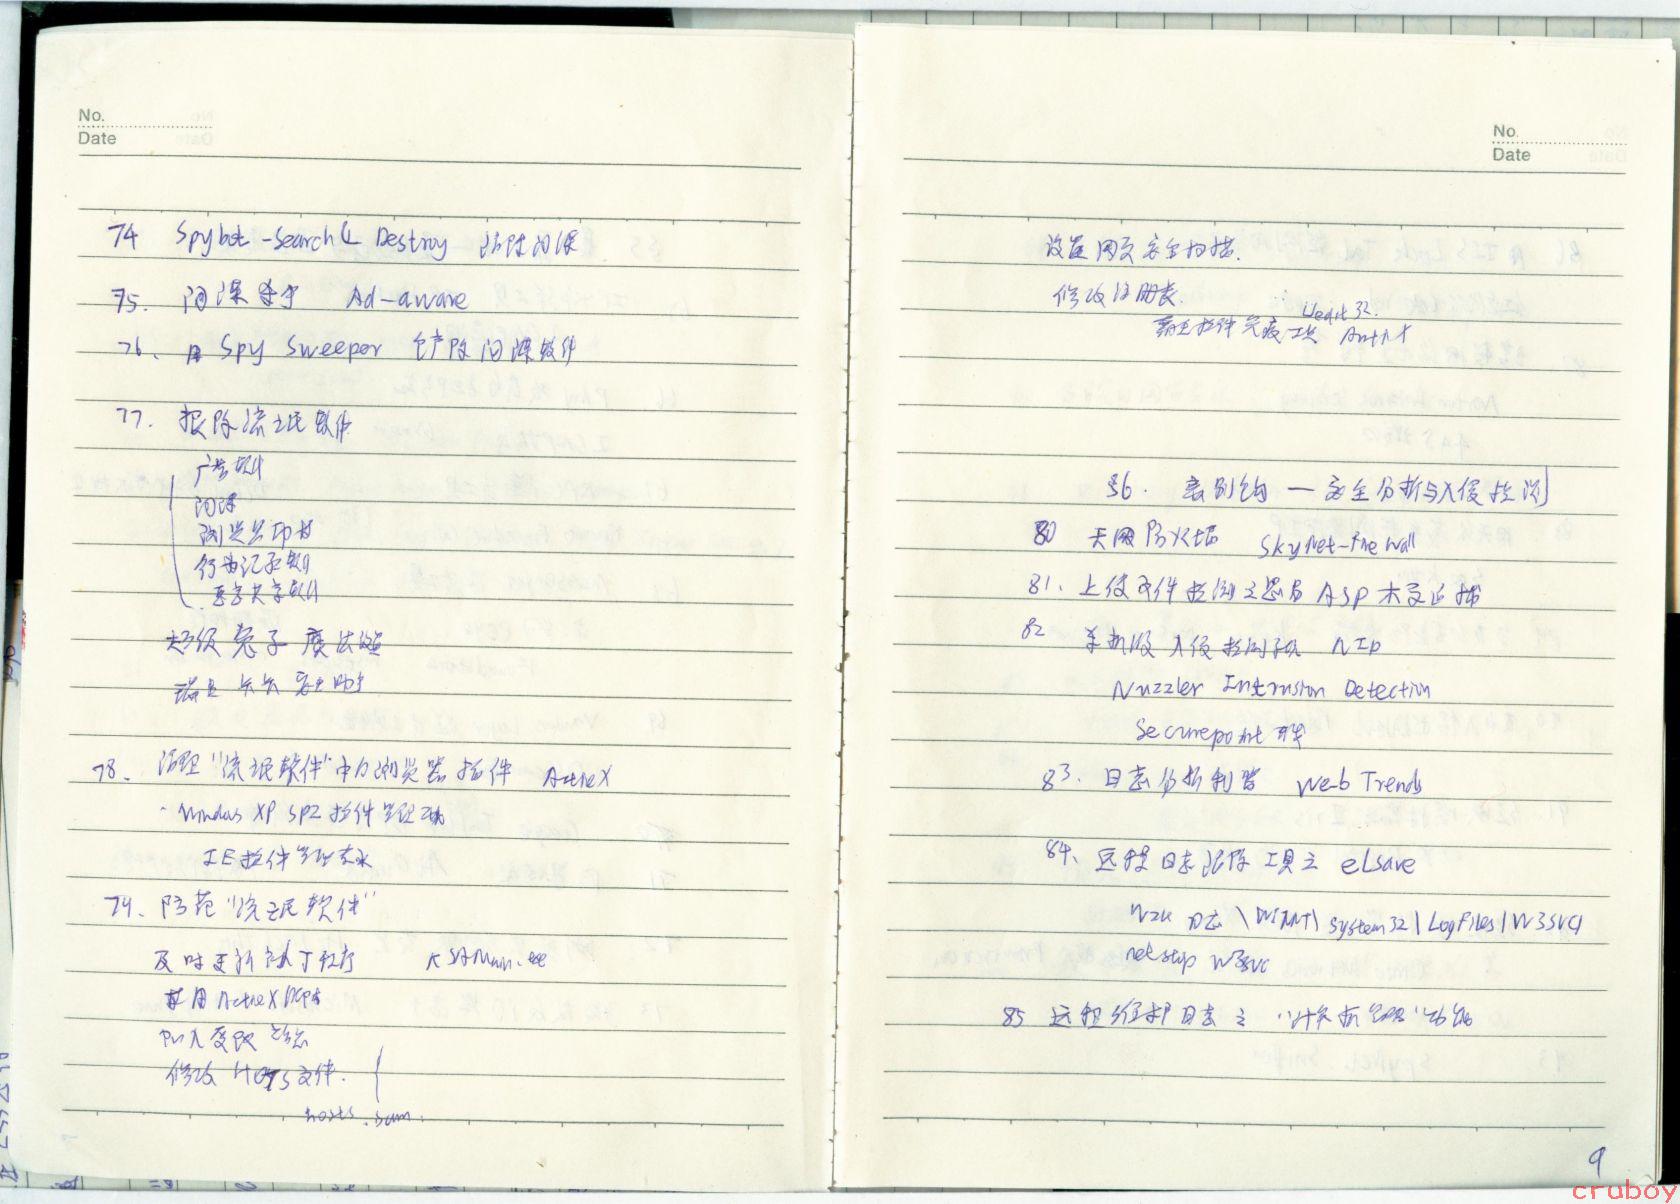 No.
Date
74 Spybot-Search & Destroy 清除间谍
75. 间谍杀手 Ad-aware
76. 用 Spy Sweeper 铲除间谍软件
77. 拒除流氓软件
广告软件
间谍
浏览器劫持
行为记录软件
恶意共享软件
超级兔子魔法设置
瑞星卡卡安全助手
78. 清理"流氓软件"中的浏览器插件 ActiveX
Windows XP SP2 插件管理功能
IE插件管理专家
79. 防范"流氓软件"
及时更新补丁程序 KSAMain.exe
禁用ActiveX脚本
加入受限站点
修改 HOTS 文件.
hosts.sam.
No.
Date
设置网页安全扫描.
修改注册表. Uedit32.
霸王插件免疫工具 AntiX
36. 离别钩 — 安全分析与入侵检测
80 天网防火墙 SkyNet-FireWall
81. 上传文件检测之思易ASP木马追捕
82 单机版入侵检测系统 NID
Nuzzler Intrusion Detection
Securepoint 开发
83. 日志分析利器 WebTrends
84. 远程日志清除工具之 elsave
W2K 日志 \WINNT\system32\LogFiles\W3SVC1
net stop w3svc
85 远程维护日志之"计算机管理"功能
9
cruboy